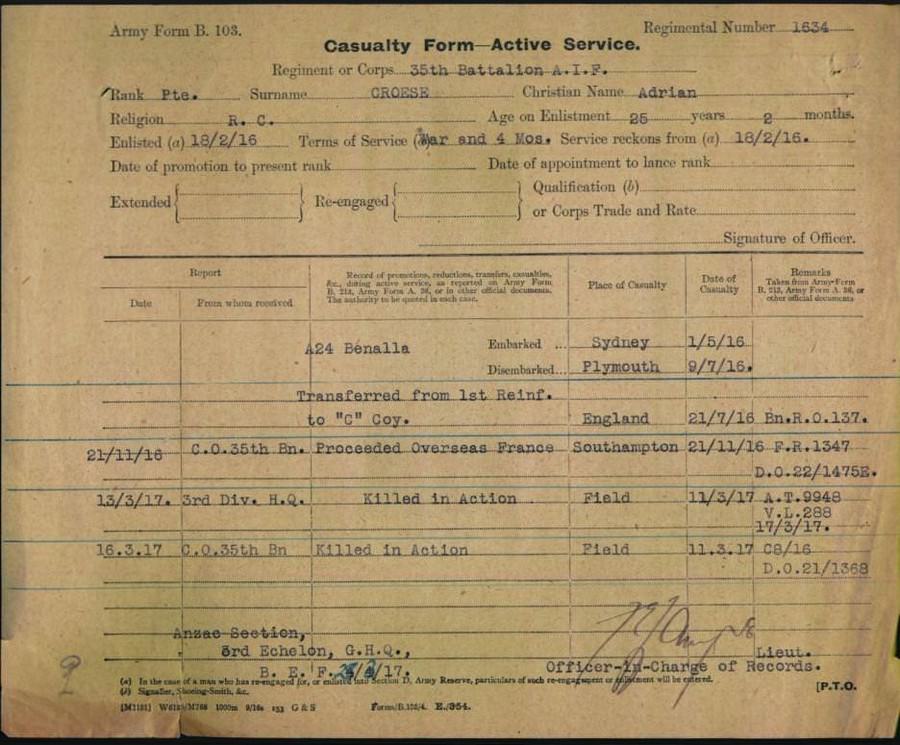 Army Form B. 103.
Regimental Number 1634
Casualty Form—Active Service.
Regiment or Corps 35th Battalion A.I.F.
Rank Pte. Surname CROESE Christian Name Adrian
Religion R. C. Age on Enlistment 25 years 2 months.
Enlisted (a) 18/2/16 Terms of Service War and 4 Mos. Service reckons from (a) 18/2/16.
Date of promotion to present rank Date of appointment to lance rank
Extended Re-engaged Qualification (b)
or Corps Trade and Rate
Signature of Officer.
Report
Date
From whom received
Record of promotions, reductions, transfers, casualties,
&c., during active service, as reported on Army Form
B. 213, Army Form A. 36, or in other official documents.
The authority to be quoted in each case.
Place of Casualty
Date of
Casualty
Remarks
Taken from Army Form
B. 213, Army Form A. 36, or
other official documents
A24 Benalla Embarked ... Sydney 1/5/16
Disembarked... Plymouth 9/7/16.
Transferred from 1st Reinf.
to "C" Coy. England 21/7/16 Bn.R.O.137.
21/11/16 C.O.35th Bn. Proceeded Overseas France Southampton 21/11/16 F.R.1347
D.O.22/1475E.
13/3/17. 3rd Div. H.Q. Killed in Action Field 11/3/17 A.T.9948
V.L.288
17/3/17.
16.3.17 C.O.35th Bn Killed in Action Field 11.3.17 C8/16
D.O.21/1368
Anzac Section,
3rd Echelon, G.H.Q.,
B. E. F. /17.
Lieut.
Officer-in-Charge of Records.
(a) In the case of a man who has re-engaged for, or enlisted into Section D, Army Reserve, particulars of such re-engagement or enlistment will be entered.
(b) Signaller, Shoeing-Smith, &c.
[P.T.O.
1000m 9/16s 153 G & S Forms/B.103/4. E./354.